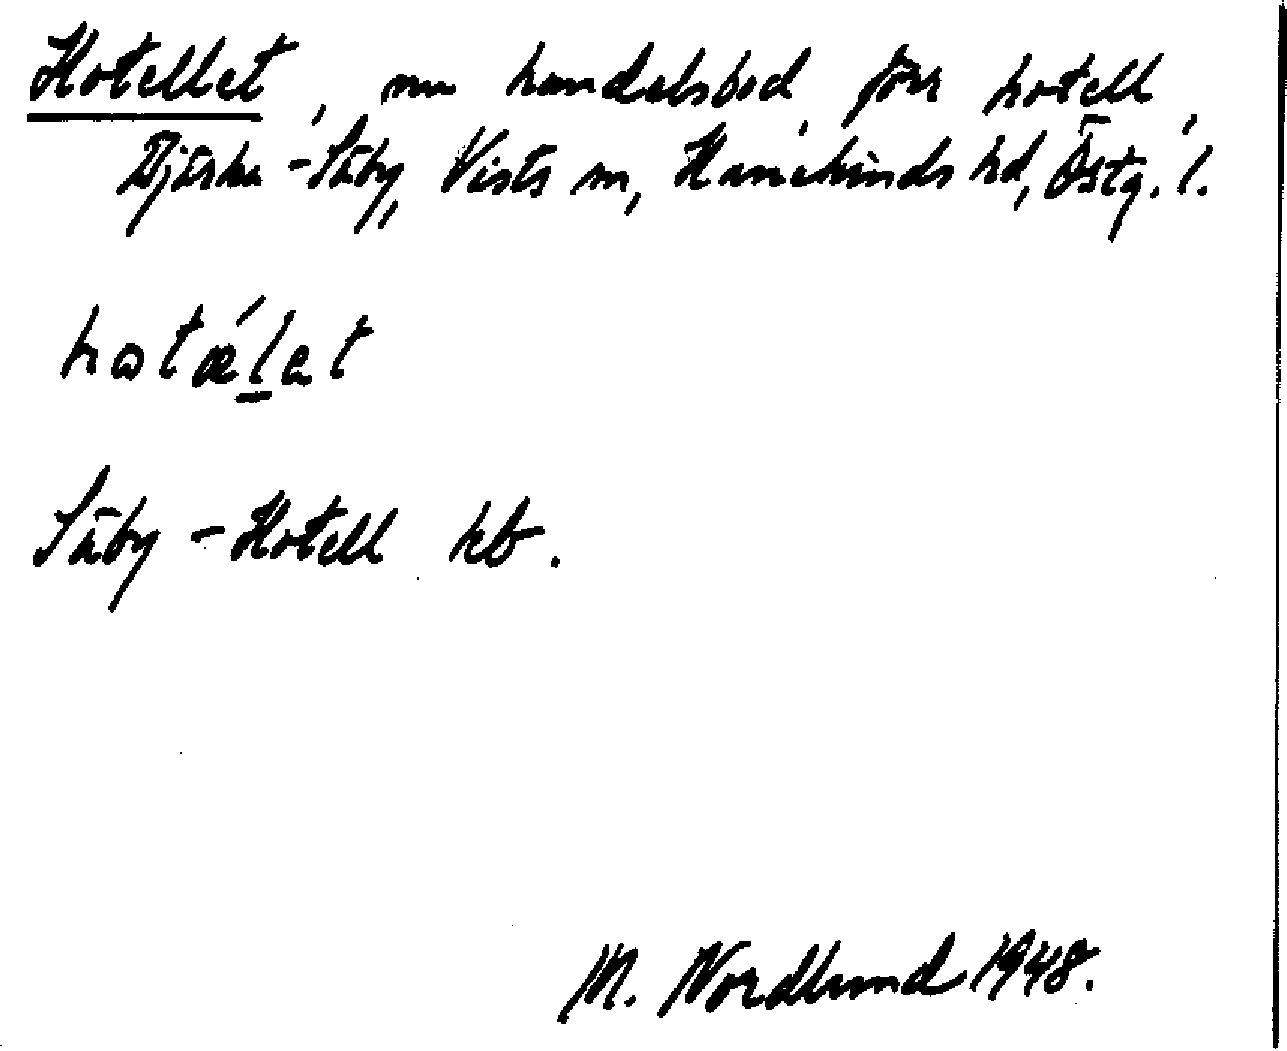 Hotellet, nu handelsbod, förr hotell,
Bjärka-Säby, Vists sn, Hanekinds hd, Östg. l.
hotǽlet
Säby-Hotell kb.
M. Nordlund 1948.